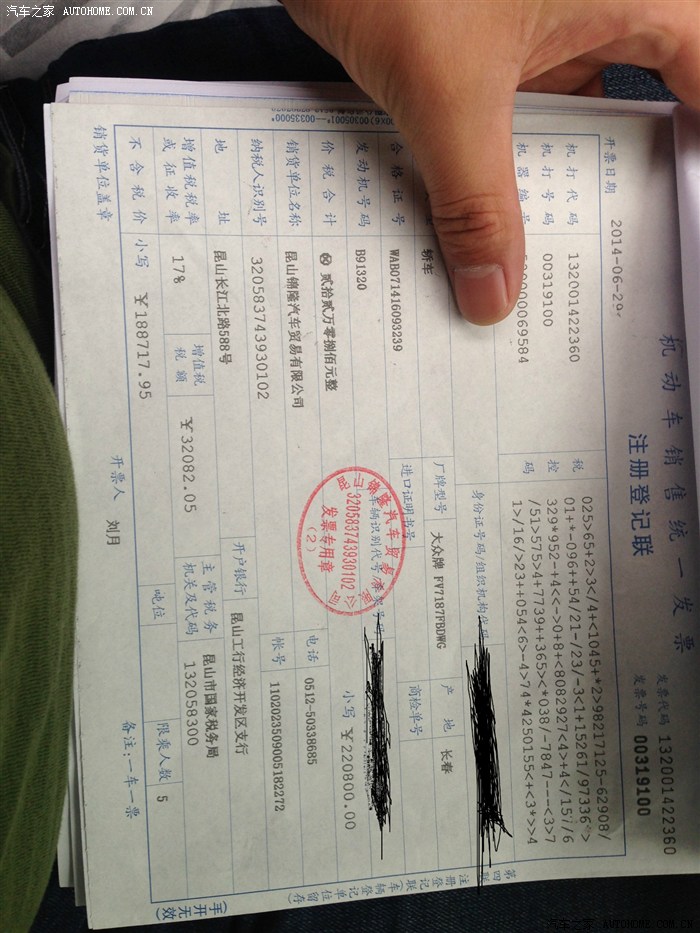 汽车之家 AUTOHOME.COM.CN
机动车销售统一发票
发票代码 132001422360
注册登记联
发票号码 00319100
开票日期 2014-06-29
机打代码 132001422360
机打号码 00319100
机器编号 000000069584
税控码
025>65+2>3</4+<1045+*2>98217125-62908/
01++-096++54/21-/23/-3<1+15261/97336
329*952-+4<<->0+8+<8082927<4>+4</157/6
/51>575>4+7739++365><*038/-7847---<3>7
1>/16/>23++054<6>-4>74*4250155<+<3*>>4
身份证号码/组织机构代码
轿车
厂牌型号 大众牌 FV7187FBDWG
产地 长春
合格证号 WAB071416093239
进口证明书号
商检单号
发动机号码 B91320
车辆识别代号/车架号码
价税合计 ⊗ 贰拾贰万零捌佰元整
小写 ¥220800.00
销货单位名称 昆山锦隆汽车贸易有限公司
电话 0512-50338685
纳税人识别号 320583743930102
帐号 1102023509005182272
地址 昆山长江北路588号
开户银行 昆山工行经济开发区支行
增值税税率或征收率 17%
增值税税额 ¥32082.05
主管税务机关及代码 昆山市国家税务局
132058300
不含税价 小写 ¥188717.95
吨位
限乘人数 5
销货单位盖章
开票人 刘月
备注:一车一票
320583743930102
发票专用章
(2)
第四联 注册登记联(车辆登记单位留存)
(手开无效)
汽车之家 AUTOHOME.COM.CN